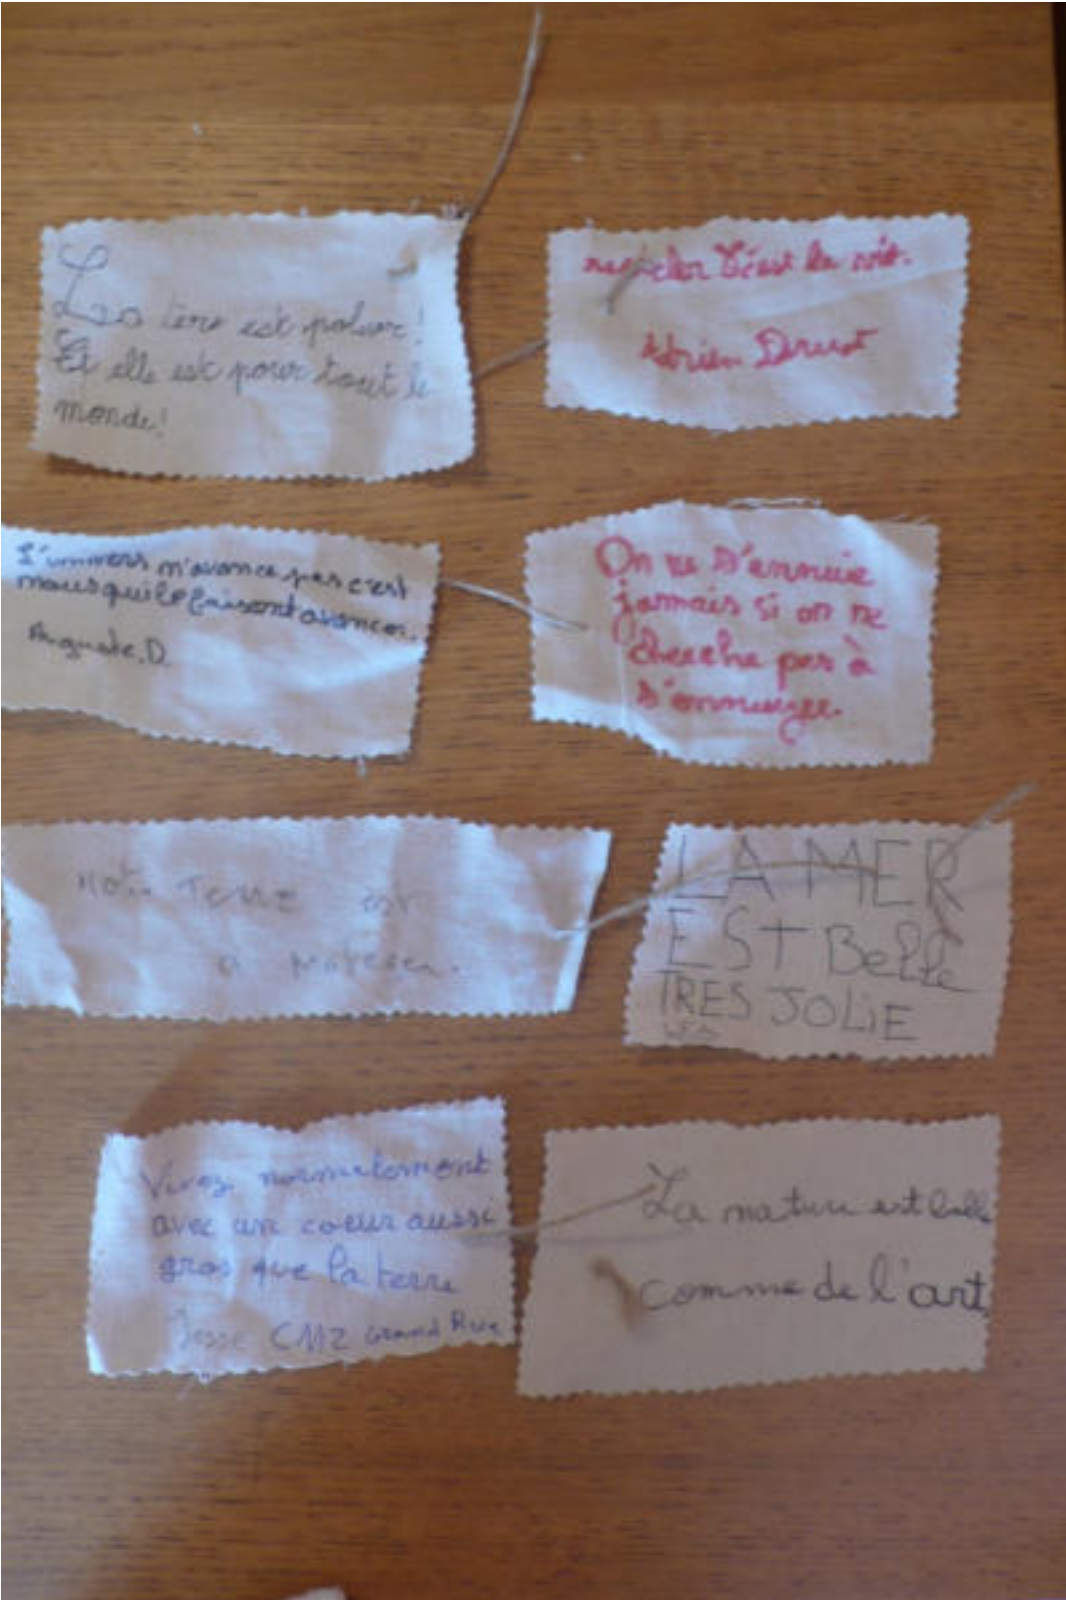 est
Et elle est pour tout le
monde!
c'est la
Adrien
L'univers n'avance pas c'est
nous qui le faisont avancer.
Auguste.D.
On ne s'ennuie
jamais si on ne
cherche pas à
s'ennuyer.
Terre est
a
LA MER
EST Belle
TRES JOLIE
LEA
Vivez normalement
avec un coeur aussi
gros que la terre
Jesse CM2 Grand Rue
La nature est belle
comme de l'art